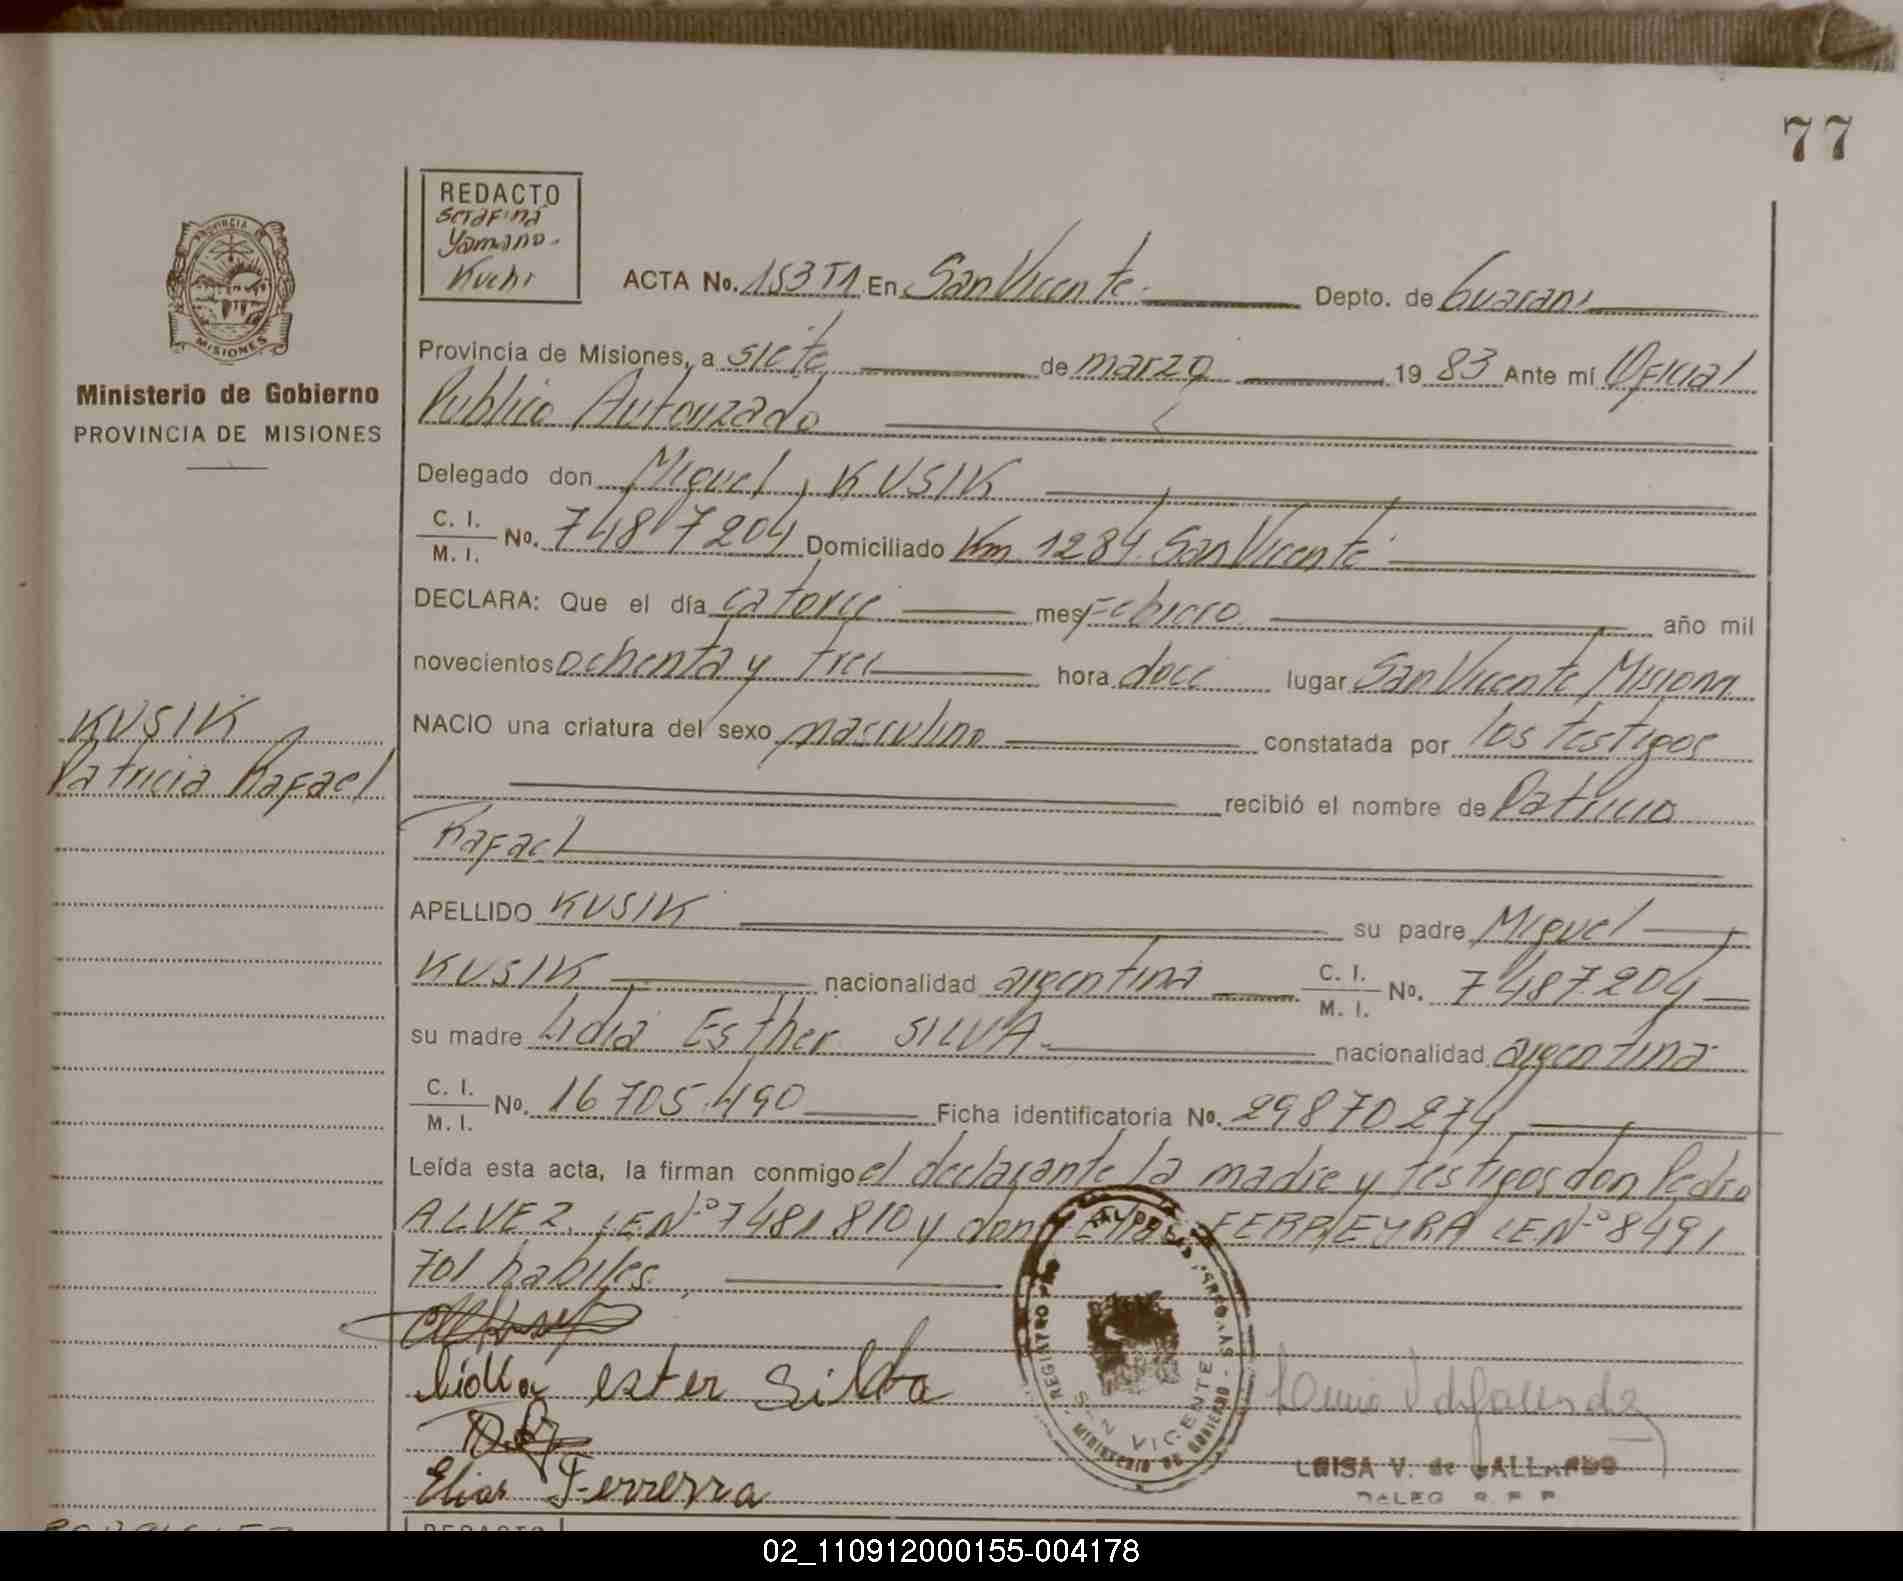 77
REDACTO
serafina
Yamano.
Kuchi
PROVINCIA DE
MISIONES
Ministerio de Gobierno
PROVINCIA DE MISIONES
ACTA No. 153 T1 En San Vicente. Depto. de Guarani
Provincia de Misiones, a siete de marzo 19 83 Ante mí Oficial
Publico Autorizado
Delegado don Miguel, KUSIK
C. I.
M. I. No. 7487204 Domiciliado Km 1284 San Vicente
DECLARA: Que el día catorce mes Febrero año mil
novecientos ochenta y tres hora doce lugar San Vicente Misiones
NACIO una criatura del sexo masculino constatada por los testigos
recibió el nombre de Patricio
Rafael
KUSIK
Patricio Rafael
APELLIDO KUSIK su padre Miguel
KUSIK nacionalidad argentina C. I.
M. I. No. 7487204
su madre Lidia Esther SILVA. nacionalidad argentina
C. I.
M. I. No. 16705.490 Ficha identificatoria No. 29870274
Leída esta acta, la firman conmigo el declarante la madre y testigos don Pedro
ALVEZ. L.E.Nº 7481810 y don Elias FERREYRA L.E.Nº 8491
701 habiles.
Lidia ester Silba
Elias Ferrerra
REGISTRO
SAN VICENTE
MINISTERIO DE GOBIERNO
LUISA V. de GALLARDO
DELEG. R. P. P.
REDACTO
02_110912000155-004178